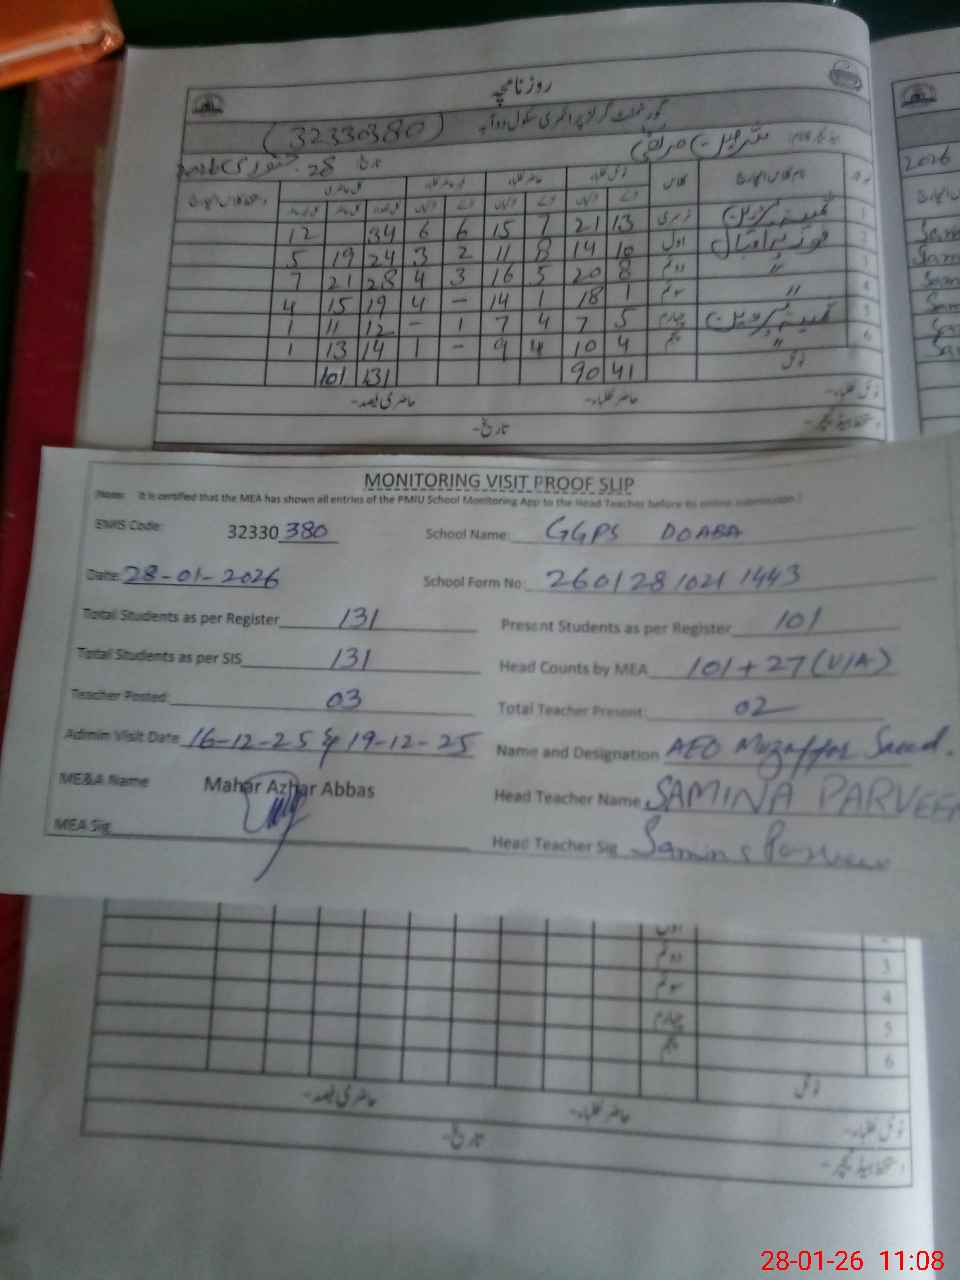 روزنامچہ
گورنمنٹ گرلز پرائمری سکول دوآبہ (32330380)
28 جنوری 2026
نمبر شمار نام کلاس انچارج کلاس کل طلباء حاضر طلباء غیر حاضر طلباء کل حاضری دستخط کلاس انچارج
1 نرسری 13 21 7 15 6 6 34 12
2 فوزیہ اقبال اول 10 14 8 11 2 3 24 19 5
3 〃 دوئم 8 20 5 16 3 4 28 21 7
4 〃 سوئم 1 18 1 14 – 4 19 15 4
5 چہارم 5 7 4 7 1 – 12 11 1
6 〃 پنجم 4 10 4 9 – 1 14 13 1
ٹوٹل 41 90 131 101
ٹوٹل طلباء۔ حاضر طلباء۔ حاضری فیصد۔
دستخط ہیڈ ٹیچر۔ تاریخ۔
2026
MONITORING VISIT PROOF SLIP
(Note: It is certified that the MEA has shown all entries of the PMIU School Monitoring App to the Head Teacher before its online submission.)
EMIS Code: 32330 380 School Name: GGPS DOABA
Date: 28-01-2026 School Form No: 260128 1021 1443
Total Students as per Register 131 Present Students as per Register 101
Total Students as per SIS 131 Head Counts by MEA 101+27(U/A)
Teacher Posted: 03 Total Teacher Present: 02
Admin Visit Date 16-12-25 & 19-12-25 Name and Designation AEO Muzaffar Saeed.
ME&A Name Mahar Azhar Abbas Head Teacher Name SAMINA PARVEEN
MEA Sig Head Teacher Sig Samina Parveen
اول 2
دوئم 3
سوئم 4
چہارم 5
پنجم 6
ٹوٹل
ٹوٹل طلباء۔ حاضر طلباء۔ حاضری فیصد۔
دستخط ہیڈ ٹیچر۔ تاریخ۔
28-01-26 11:08